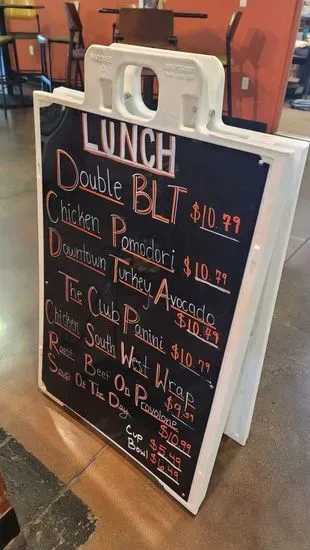 LUNCH
Double BLT $10.79
Chicken Pomodori $10.79
Downtown Turkey Avocado $10.79
The Club Panini $10.79
Chicken South West Wrap $9.59
Roast Beef On Provolone $10.99
Soup Of The Day
Cup $5.49
Bowl $6.49